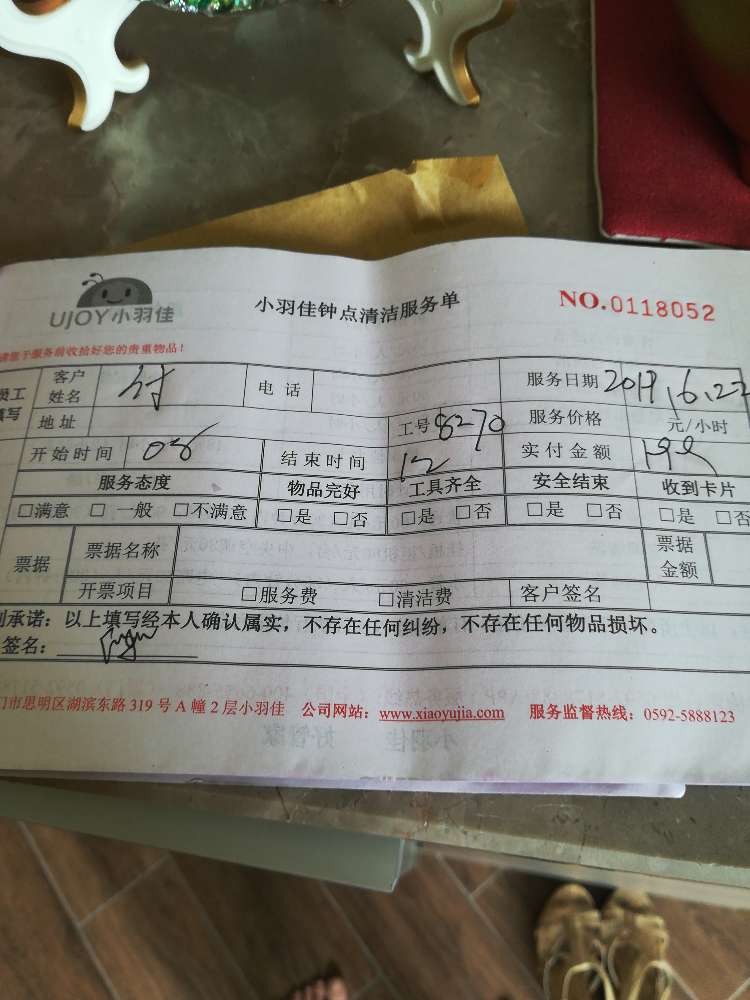 UJOY小羽佳
小羽佳钟点清洁服务单
NO.0118052
请您于服务前收拾好您的贵重物品！
员工填写
客户姓名 付 电话 服务日期 2019.6.22
地址 工号 8270 服务价格 元/小时
开始时间 08 结束时间 12 实付金额
服务态度 物品完好 工具齐全 安全结束 收到卡片
□满意 □一般 □不满意 □是 □否 □是 □否 □是 □否 □是 □否
票据 票据名称 票据金额
开票项目 □服务费 □清洁费 客户签名
承诺：以上填写经本人确认属实，不存在任何纠纷，不存在任何物品损坏。
签名：
门市思明区湖滨东路319号A幢2层小羽佳 公司网站：www.xiaoyujia.com 服务监督热线：0592-5888123